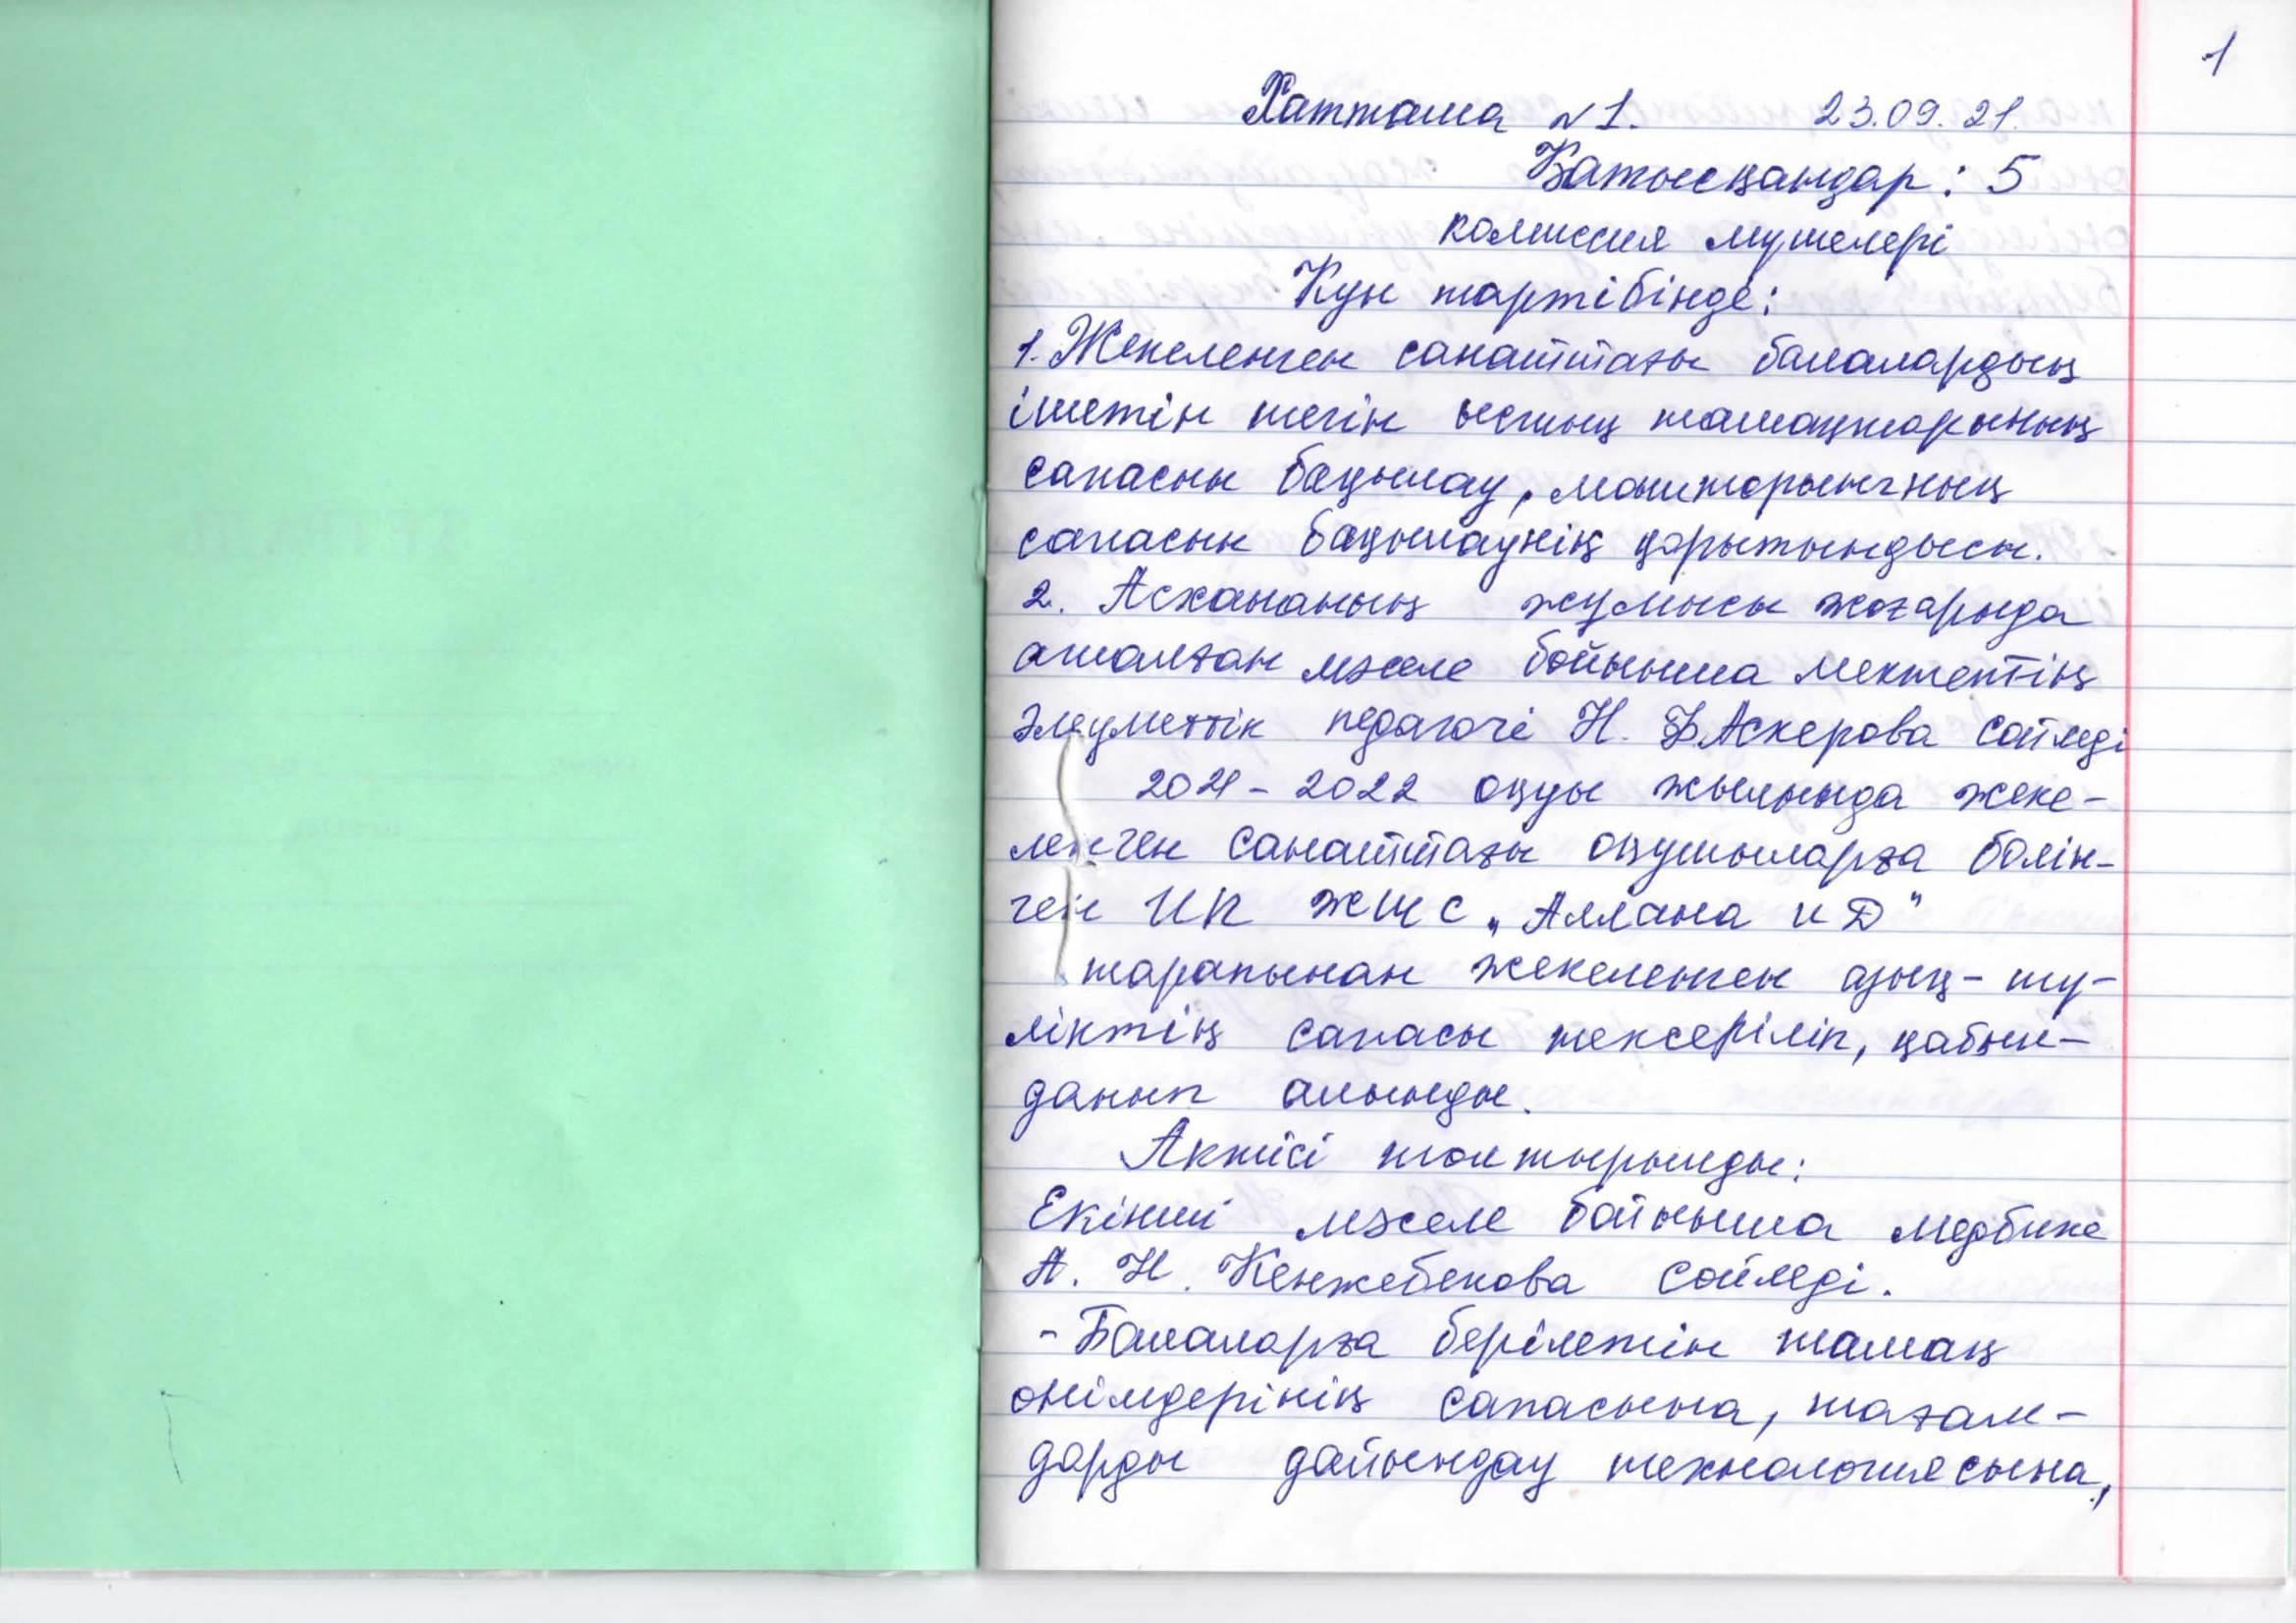 1
Хаттама №1. 23.09.21.
Қатысқандар: 5
комиссия мүшелері
Күн тәртібінде:
1. Жекеленген санаттағы балалардың
ішетін тегін ыстық тамақтарының
сапасын бақылау, мониторингнің
сапасын бақылаудың қорытындысы.
2. Асхананың жұмысы жоғарыда
аталған мәселе бойынша мектептің
әлеуметтік педагогі Н. Ф. Аскерова сөйледі
2021-2022 оқу жылында жеке-
ленген санаттағы оқушыларға бөлін-
ген ИП ЖШС „Аллана и Д"
тарапынан жекеленген азық-тү-
ліктің сапасы тексеріліп, қабыл-
данып алынды.
Актісі толтырылды:
Екінші мәселе бойынша медбике
А. Н. Кенжебекова сөйледі.
- Балаларға берілетін тамақ
өнімдерінің сапасына, тағам-
дарды дайындау технологиясына,